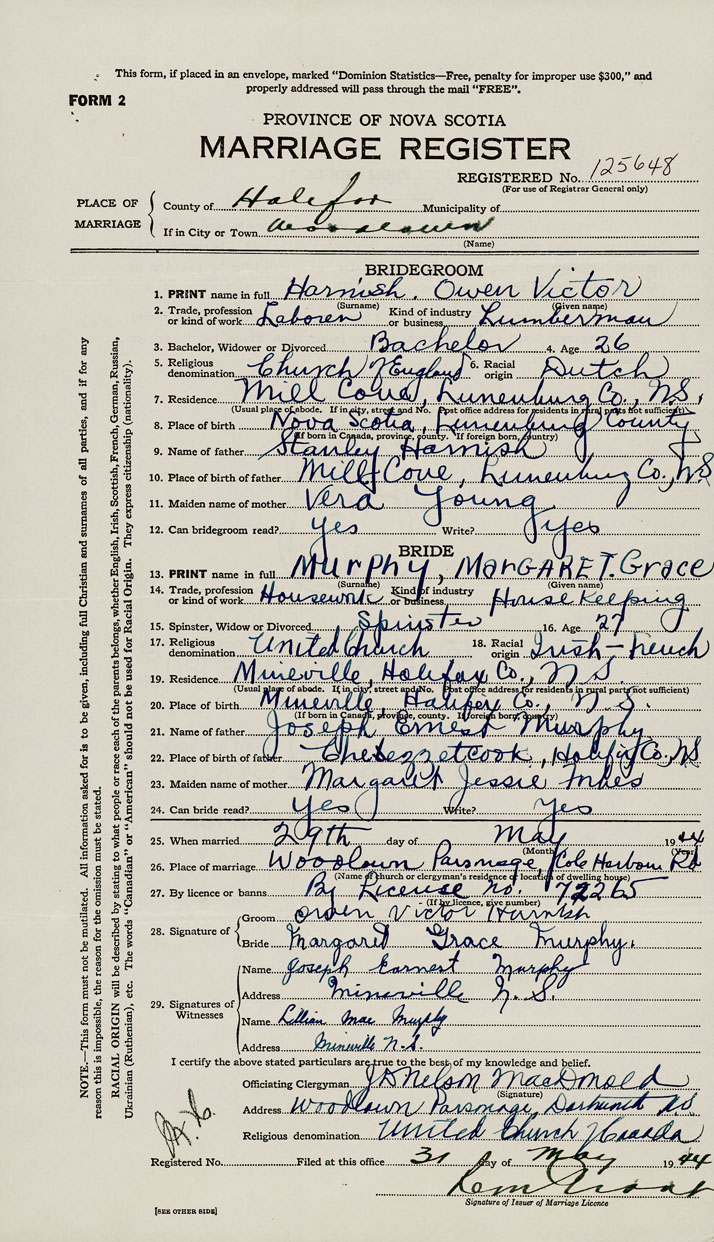 This form, if placed in an envelope, marked "Dominion Statistics—Free, penalty for improper use $300," and
properly addressed will pass through the mail "FREE".
FORM 2
PROVINCE OF NOVA SCOTIA
MARRIAGE REGISTER
REGISTERED No. 125648
(For use of Registrar General only)
PLACE OF MARRIAGE
County of Halifax Municipality of
If in City or Town Woodlawn
(Name)
BRIDEGROOM
1. PRINT name in full Harnish, Owen Victor
(Surname) (Given name)
2. Trade, profession or kind of work Laborer Kind of industry or business Lumberman
3. Bachelor, Widower or Divorced Bachelor 4. Age 26
5. Religious denomination Church of England 6. Racial origin Dutch
7. Residence Mill Cove, Lunenburg Co., N.S.
(Usual place of abode. If in city, street and No. Post office address for residents in rural parts not sufficient)
8. Place of birth Nova Scotia, Lunenburg County
(If born in Canada, province, county. If foreign born, country)
9. Name of father Stanley Harnish
10. Place of birth of father Mill Cove, Lunenburg Co., N.S
11. Maiden name of mother Vera Young
12. Can bridegroom read? yes Write? yes
BRIDE
13. PRINT name in full Murphy, MARGARET. Grace
(Surname) (Given name)
14. Trade, profession or kind of work Housework Kind of industry or business House Keeping
15. Spinster, Widow or Divorced Spinster 16. Age 27
17. Religious denomination United Church 18. Racial origin Irish-French
19. Residence Mineville, Halifax Co., N.S.
(Usual place of abode. If in city, street and No. Post office address for residents in rural parts not sufficient)
20. Place of birth Mineville, Halifax Co., N.S.
(If born in Canada, province, county. If foreign born, country)
21. Name of father Joseph Ernest Murphy
22. Place of birth of father Chezzetcook, Halifax Co., NS
23. Maiden name of mother Margaret Jessie Innes
24. Can bride read? Yes Write? Yes
25. When married 29th day of May 1944
(Month) (Year)
26. Place of marriage Woodlawn Parsonage, Cole Harbour Rd
(Name of church or clergyman's residence or location of dwelling house)
27. By licence or banns By License no. 72265
(If by licence, give number)
28. Signature of
Groom Owen Victor Harnish
Bride Margaret Grace Murphy.
29. Signatures of Witnesses
Name Joseph Earnest Murphy
Address Mineville N.S.
Name Lillian Mae Murphy
Address Mineville N.S.
I certify the above stated particulars are true to the best of my knowledge and belief.
Officiating Clergyman J D Nelson MacDonald
(Signature)
Address Woodlawn Parsonage, Dartmouth NS.
Religious denomination United Church of Canada
Registered No. Filed at this office 31 day of May 1944
Signature of Issuer of Marriage Licence
[SEE OTHER SIDE]
NOTE.—This form must not be mutilated. All information asked for is to be given, including full Christian and surnames of all parties, and if for any
reason this is impossible, the reason for the omission must be stated.
RACIAL ORIGIN will be described by stating to what people or race each of the parents belongs, whether English, Irish, Scottish, French, German, Russian,
Ukrainian (Ruthenian), etc. The words "Canadian" or "American" should not be used for Racial Origin. They express citizenship (nationality).